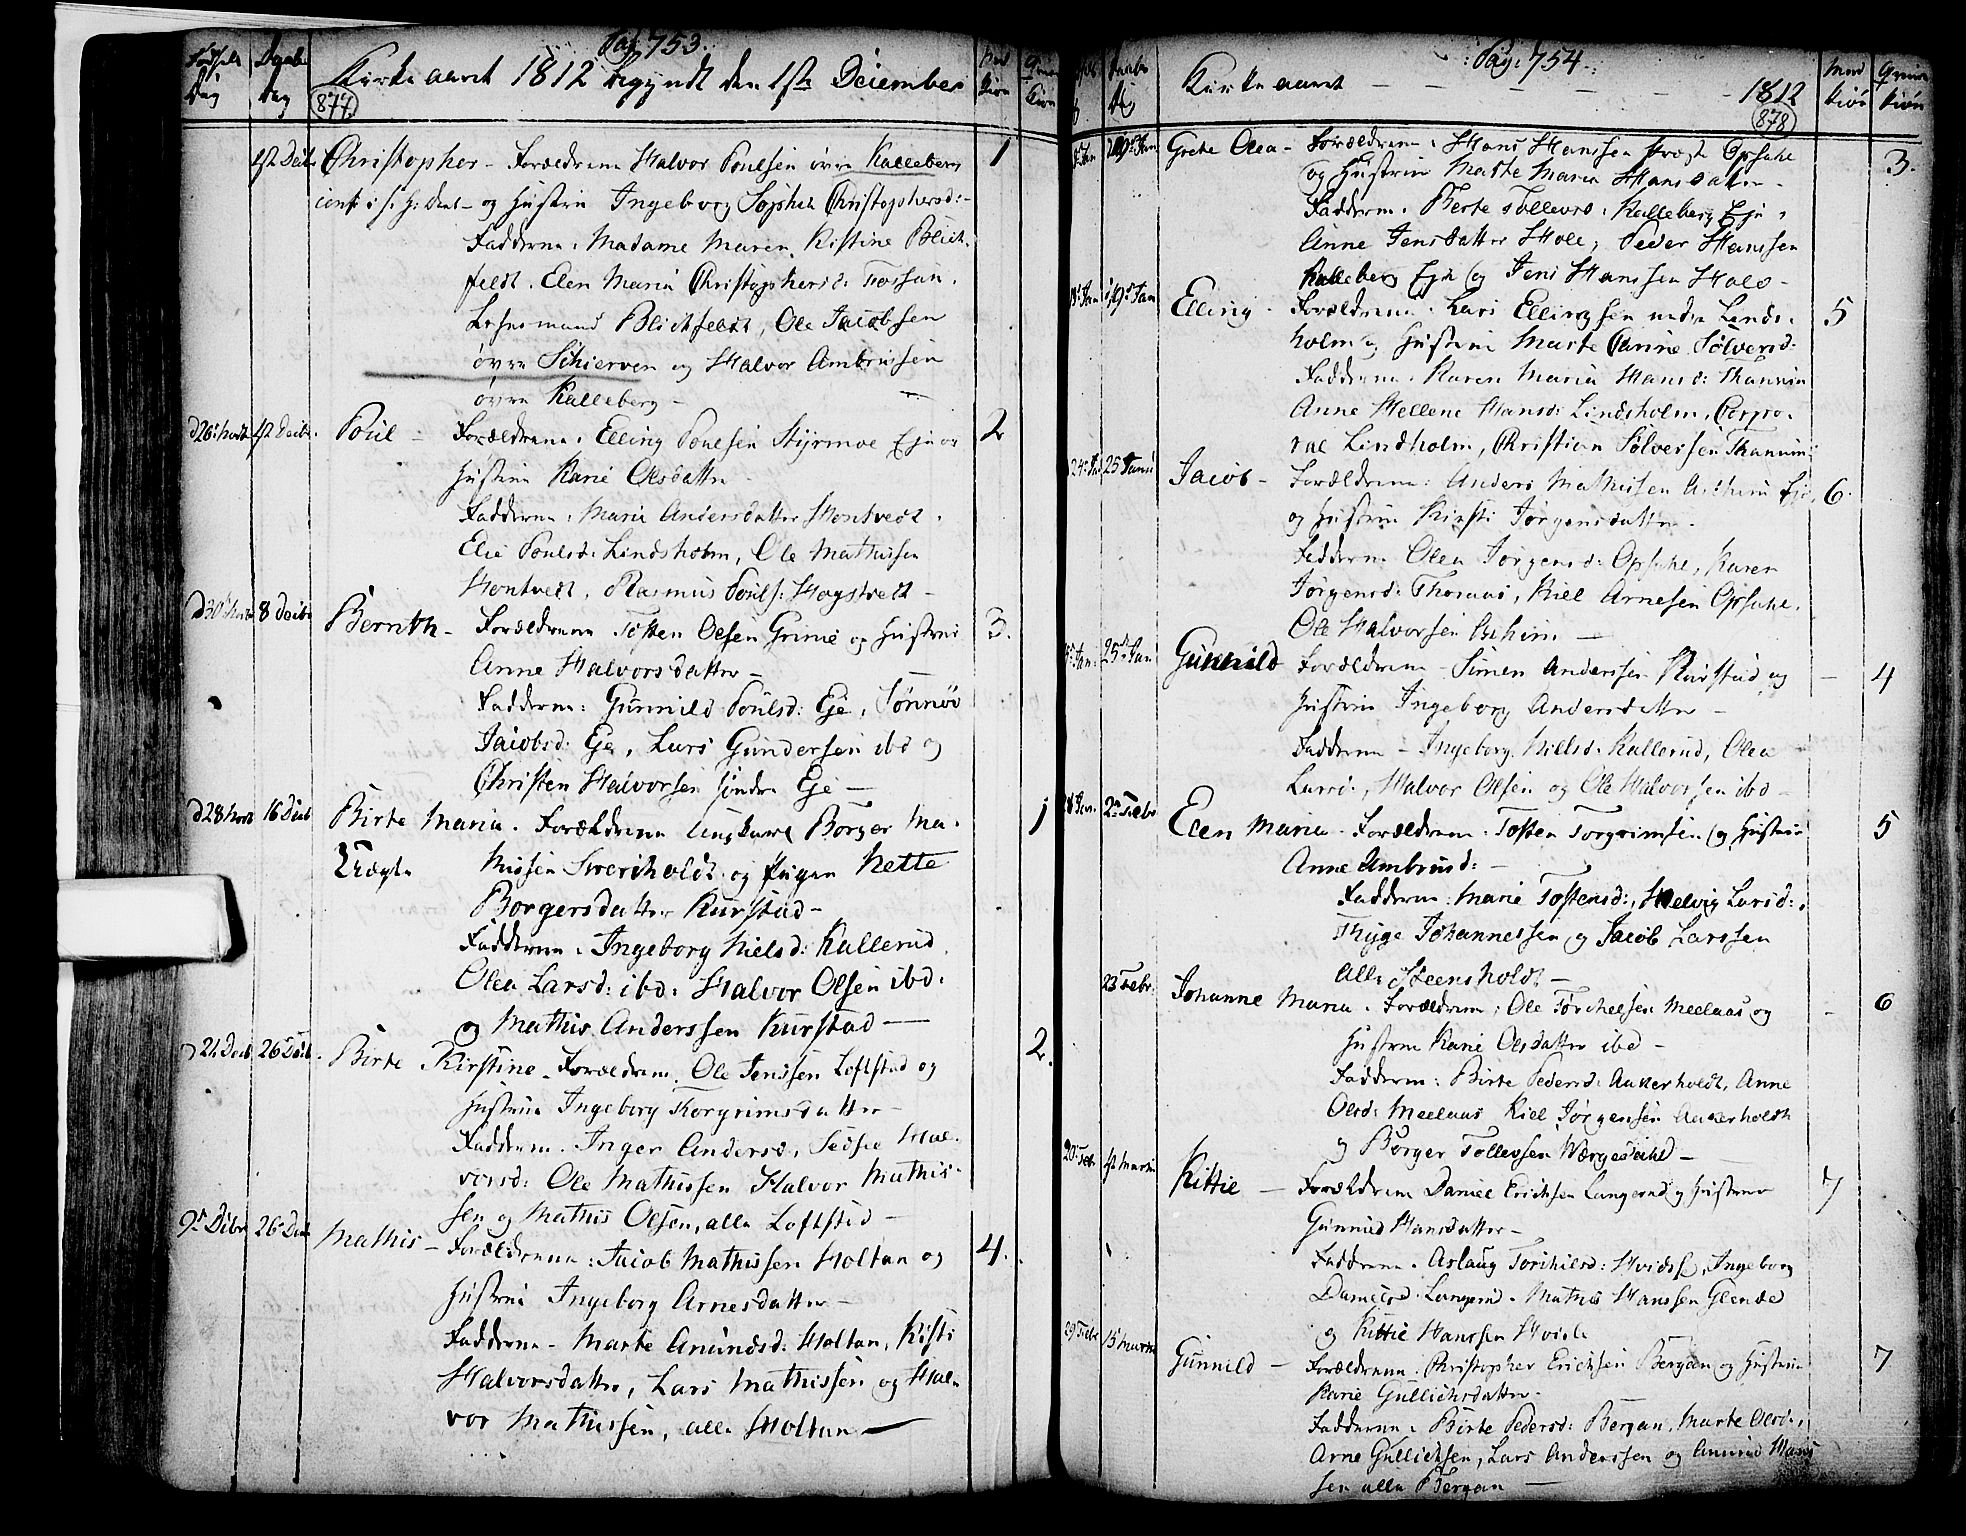 Pag. 753.
Fødsels Dag
Daabs Dag
Kirke aaret 1812 begyndt den 1ste December
877.
Mand Kiøn
Qvinde Kiøn
1ste Decbr. Christopher - Forældrene Halvor Poulsen øvre Kalleberg 1
og Hustru Ingeborg Sophia Christophersd: -
Fadderne: Madame Maren Kistine Blich-
feldt, Elen Maria Christophersd: Fossan,
Lehnsmand Blichfeldt, Ole Jacobsen
øvre Schierven og Halvor Ambrosen
øvre Kalleberg -
d 26 Novbr 1ste Decbr. Poul - Forældrene: Elling Poulsen Styrmoe Eje og 2
Hustru Karie Olsdatter
Fadderne: Marie Andersdatter Hontvedt,
Elie Poulsd: Lindsholm, Ole Mathisen
Hontvedt, Rasmus Pouls: Hogstvedt -
d 30 Novbr 8 Decbr Bernth - Forældrene Tosten Olsen Grime og Hustru 3.
Anne Halvorsdatter -
Fadderne: Gunnild Poulsd: Eje, Tønnøv
Jacobsd: Eje, Lars Gundersen ibd og
Christen Halvorsen søndre Eje -
d 28 Novbr 16 Decbr Birte Maria - Forældrene Ungkarl Børger Ma- 1
Uægte thisen Sverdholdt og Pigen Nette
Borgersdatter Kurstad -
Fadderne: Ingeborg Nielsd: Kallerud
Olea Larsd: ibd: Halvor Olsen ibd:
og Mathis Anderssen Kurstad -
d 21 Decbr 26 Decbr. Birte Kirstine - Forældrene Ole Jenssen Loftstad og 2.
Hustru Ingeborg Torgrimsdatter -
Fadderne: Inger Andersd, Sedsie Hal-
vorsd: Ole Mathissen Halvor Mathis-
sen og Mathis Olsen, alle Loftstad -
9de Dcbr 26 Decbr Mathis - Forældrene: Jacob Mathissen Holtan og 4.
Hustru Ingeborg Arnesdatter -
Fadderne - Marte Amundsd: Holtan, Kisti
Halvorsdatter, Lars Mathissen og Hal-
vor Mathissen, alle Holtan -
Pag. 754.
Daabs Dag
Kirke aaret 1812
878
Mand Kiøn
Qvinde Kiøn
19de Jan Grethe Olea - Forældrene: Hans Hanssen Opsahl 3.
og Hustru Marthe Maria Hansdatter -
Fadderne: Berte Tollevsd: Kalleberg Eje,
Anne Jensdatter Hole, Peder Hanssen
Kalleberg Eje og Jens Hanssen Hole -
18 Jan 19de Jan Elling - Forældrene: Lars Ellingsen nedre Linds- 5
holm og Hustru Marte Carine Sølversd:
Fadderne: Karen Maria Hansd: Thannum
Anne Hellene Hansd: Lindsholm, Corpo-
ral Lindholm, Christian Sølversen Thannum
24 Jan 25 Janu Jacob - Forældrene: Anders Mathisen Eje 6.
og Hustru Kirsti Jørgensdatter -
Fadderne Olea Jørgensd: Opsahl, Karen
Jørgensd: Thoraas, Kiel Arnesen Opsahl,
Ole Halvorsen -
Jan: 25de Jan Gunnild Forældrene - Simen Anderssen Kurstad og - 4
Hustru Ingeborg Andersdatter -
Fadderne - Ingeborg Nielsd: Kallerud, Olea
Larsd:, Halvor Olsen og Ole Halvorsen ibd -
18 Jan. 2den Febr Elen Maria - Forældrene: Tosten Torgrimsen og Hustru 5
Anne Ambrosd: -
Fadderne: Marie Tostensd:, Helvig Larsd:,
Thyge Johannessen og Jacob Larssen
alle Steensholdt -
23 Febr: Johanne Maria - Forældrene: Ole Torchelsen Meelaas og - 6
Hustru Karie Olsdatter ibd -
Fadderne: Birte Pedersd: Aakerholdt, Anne
Olsd: Meelaas Kiel Jørgensen Aakerholdt
og Børger Tollevsen Wærgedahl -
20 Febr 1ste Martii Kittil - Forældrene Daniel Erichsen Langerud og Hustrue 7
Gunnild Hansdatter -
Fadderne: Aslaug Torchilsd: Hvidst, Ingeborg
Danielsd: Langerud - Mathis Hanssen Glende
og Kittil Hanssen
29 Febr 15 Martii Gunnild - Forældrene: Christopher Erichsen Bergan og Hustrue 7
Karie Gullichsdatter -
Fadderne: Birte Pedersd: Bergan, Marte Olsd:,
Arne Gullichsen, Lars Anderssen og Amund Hans
sen alle Bergan -